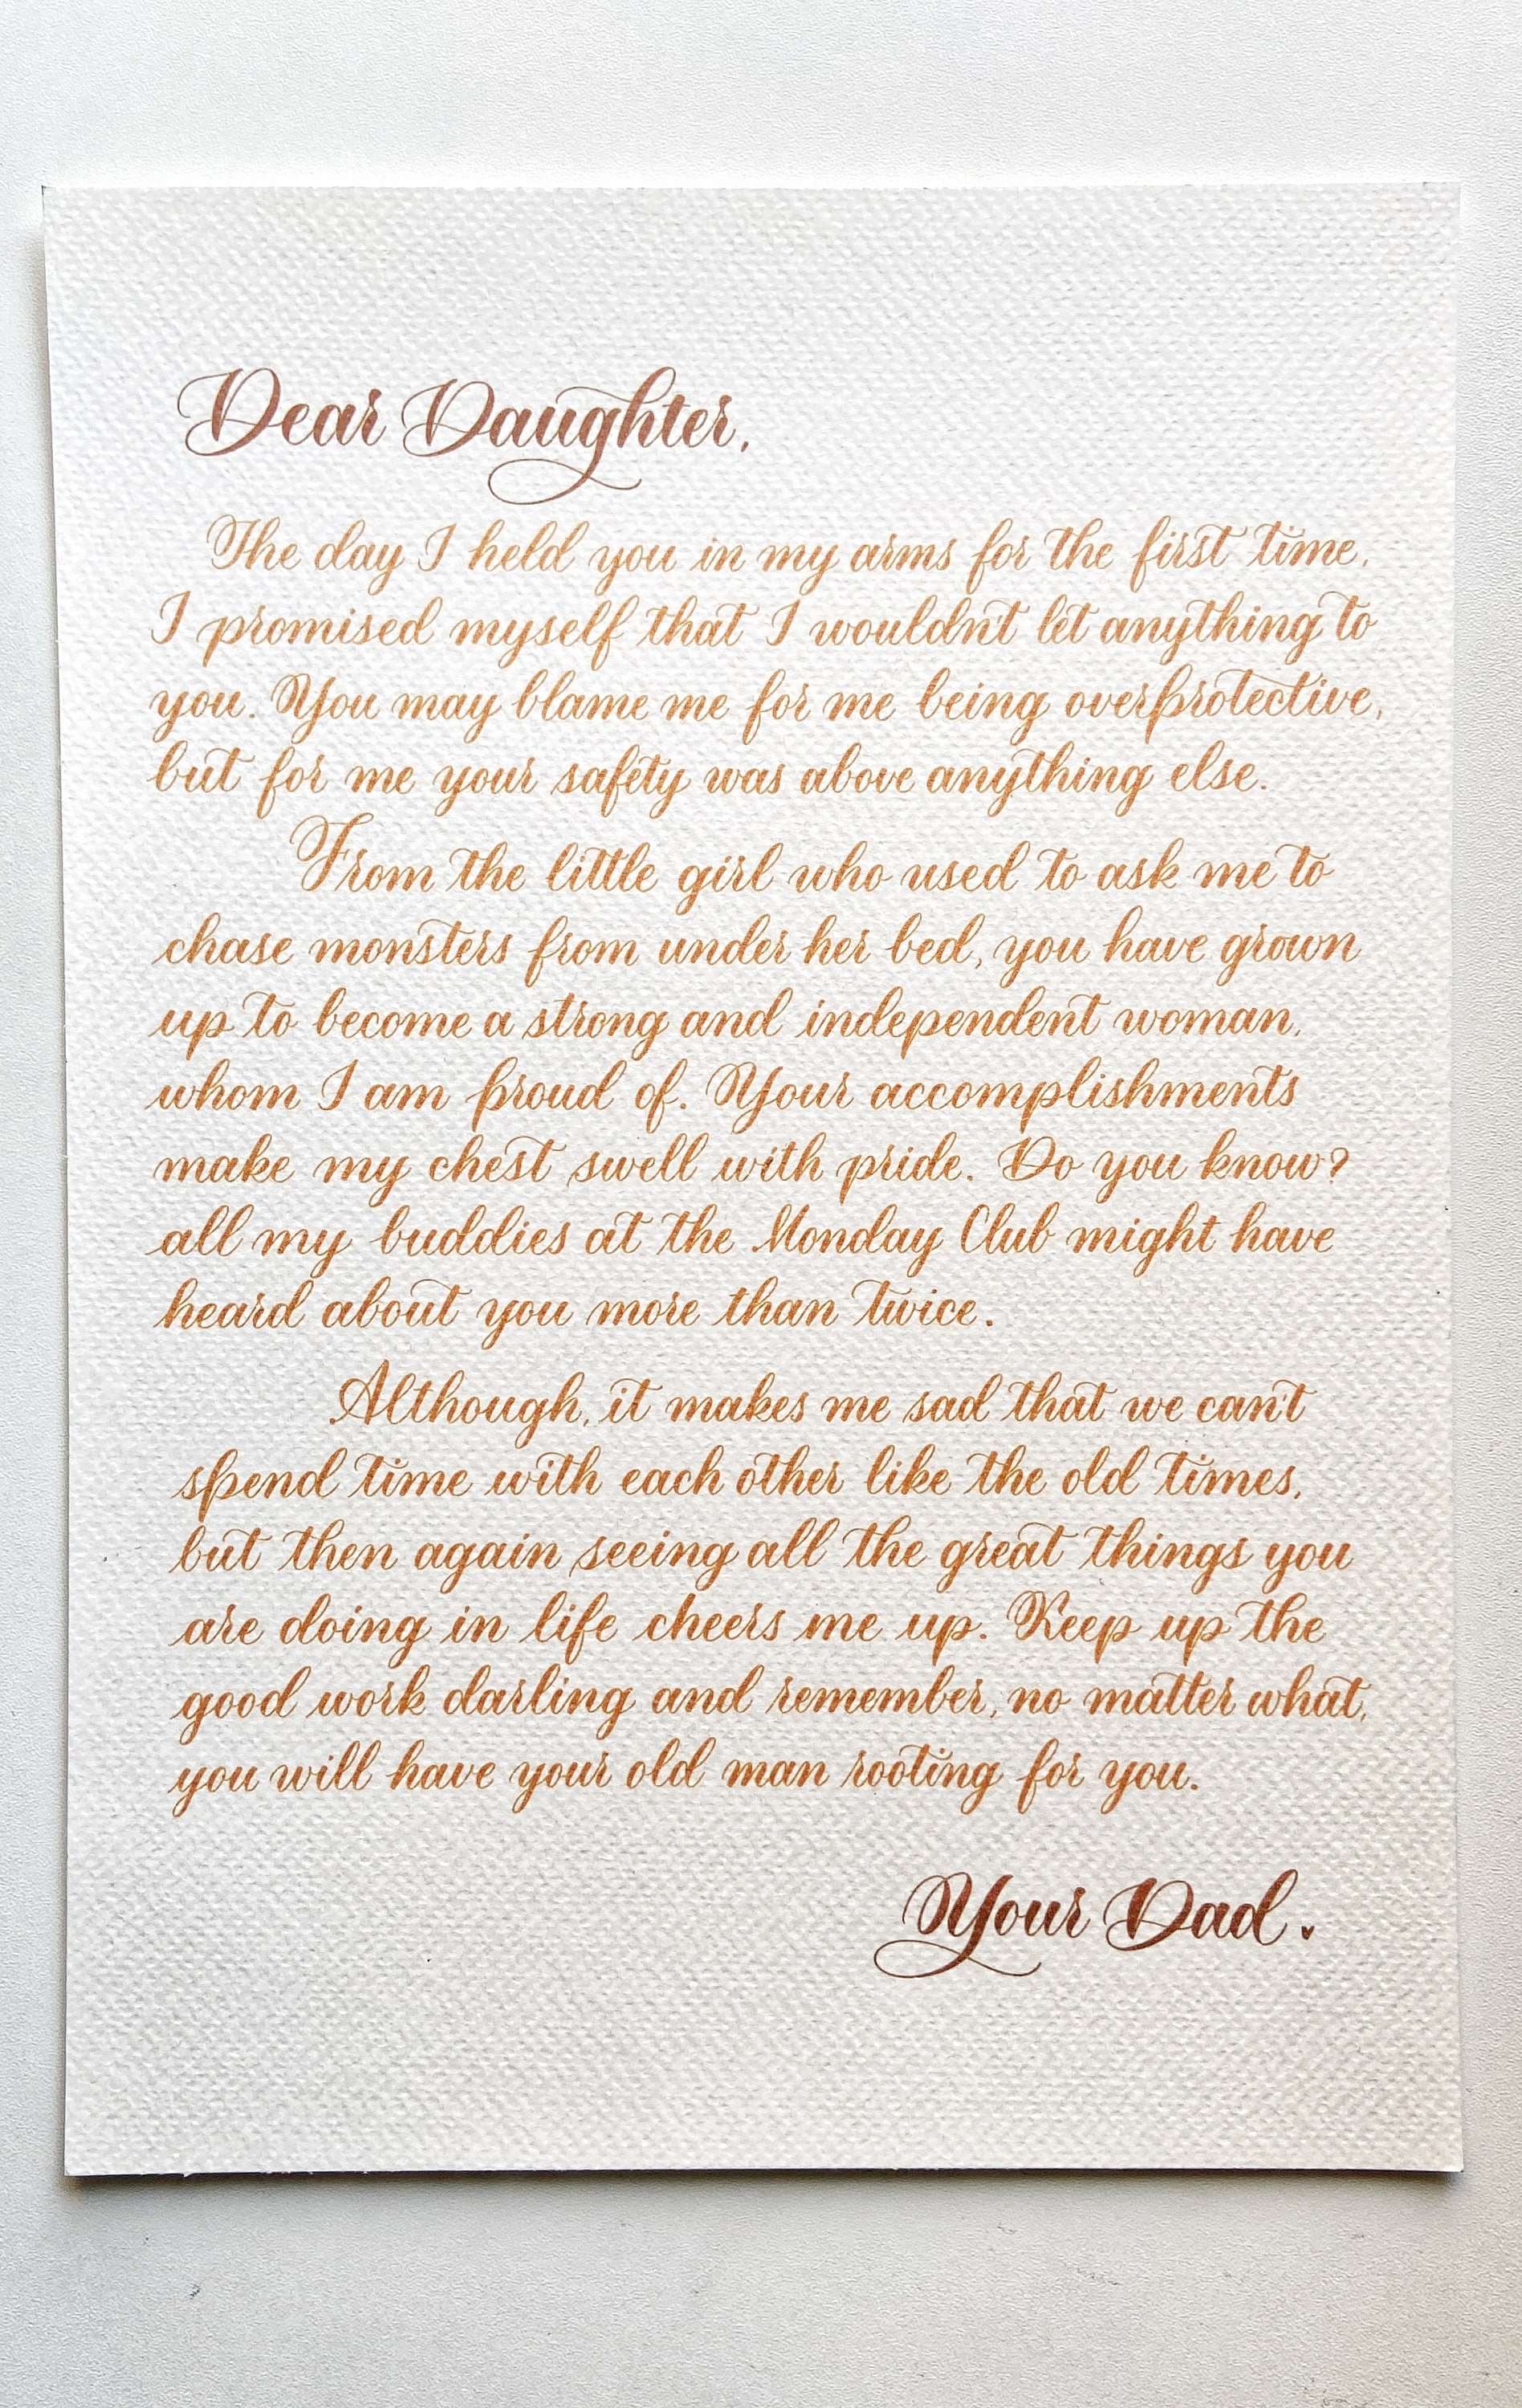 Dear Daughter,
The day I held you in my arms for the first time,
I promised myself that I wouldn't let anything to
you. You may blame me for me being overprotective,
but for me your safety was above anything else.
From the little girl who used to ask me to
chase monsters from under her bed, you have grown
up to become a strong and independent woman,
whom I am proud of. Your accomplishments
make my chest swell with pride. Do you know?
all my buddies at the Monday Club might have
heard about you more than twice.
Although, it makes me sad that we can't
spend time with each other like the old times,
but then again seeing all the great things you
are doing in life cheers me up. Keep up the
good work darling and remember, no matter what,
you will have your old man rooting for you.
Your Dad.